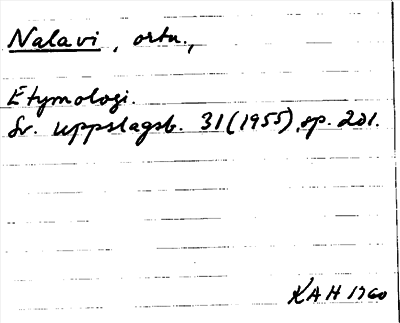 Nalavi, ortn.,
Etymologi.
Sv. uppslagsb. 31 (1955), sp. 201.
KAH 1960